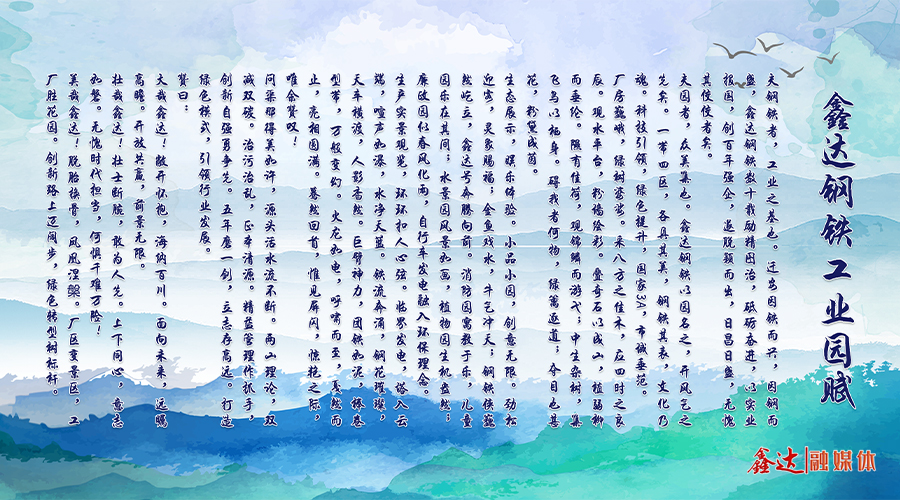 鑫达钢铁工业园赋
夫钢铁者，工业之基也。迁安因铁而兴，因钢而
盛，鑫达钢铁数十载励精图治，砥砺奋进，以实业
报国，创百年强企，遂脱颖而出，日昌日盛，无愧
其佼佼者矣。
夫园者，众美集也。鑫达钢铁以园名之，开风气之
先矣。一带四区，各具其美，钢铁其表，文化乃
魂。科技引领，绿色提升，国家3A，市诚垂范。
厂房巍峨，绿树婆娑。采八方之佳木，应四时之良
辰。观水平台，粉墙绘彩。叠奇石以成山，植弱柳
而垂纶。隙有佳荷，观锦鳞而游弋；中生杂树，集
飞鸟以栖身。碍我者何物，绿篱逐道；夺目也甚
花，粉黛成茵。
生态展示，娱乐体验。小品小园，创意无限。劲松
迎客，灵象赐福；金鱼戏水，牛气冲天；钢铁侠巍
然屹立，鑫达号奔腾向前。消防园寓教于乐，儿童
园乐在其间；水景园风景如画，植物园生机盎然；
廉政园似春风化雨，自行车发电融入环保理念。
生产实景观览，环环扣人心弦。临界发电，塔入云
端，喧声如瀑，水净天蓝。铁流奔涌，钢花璀璨，
天车横渡，人影杳然。巨臂神力，团铁如泥，棒卷
型带，万般变幻。火龙如电，呼啸而至，戛然而
止，亮相圆满。蓦然回首，惟见屏闪，惊艳之际，
唯余赞叹！
问渠那得美如许，源头活水流不断。两山理论，双
减双碳。治污治乱，正本清源。精益管理作抓手，
创新自强勇争先。五年磨一剑，立志存高远。打造
绿色模式，引领行业发展。
赞曰：
大哉鑫达！敞开怀抱，海纳百川。面向未来，远瞩
高瞻。开放共赢，前景无限。
壮哉鑫达！壮士断腕，敢为人先。上下同心，意志
如磐。无愧时代担当，何惧千难万险！
美哉鑫达！脱胎换骨，凤凰涅槃。厂区变景区，工
厂胜花园。创新路上迈阔步，绿色转型树标杆。
鑫达融媒体